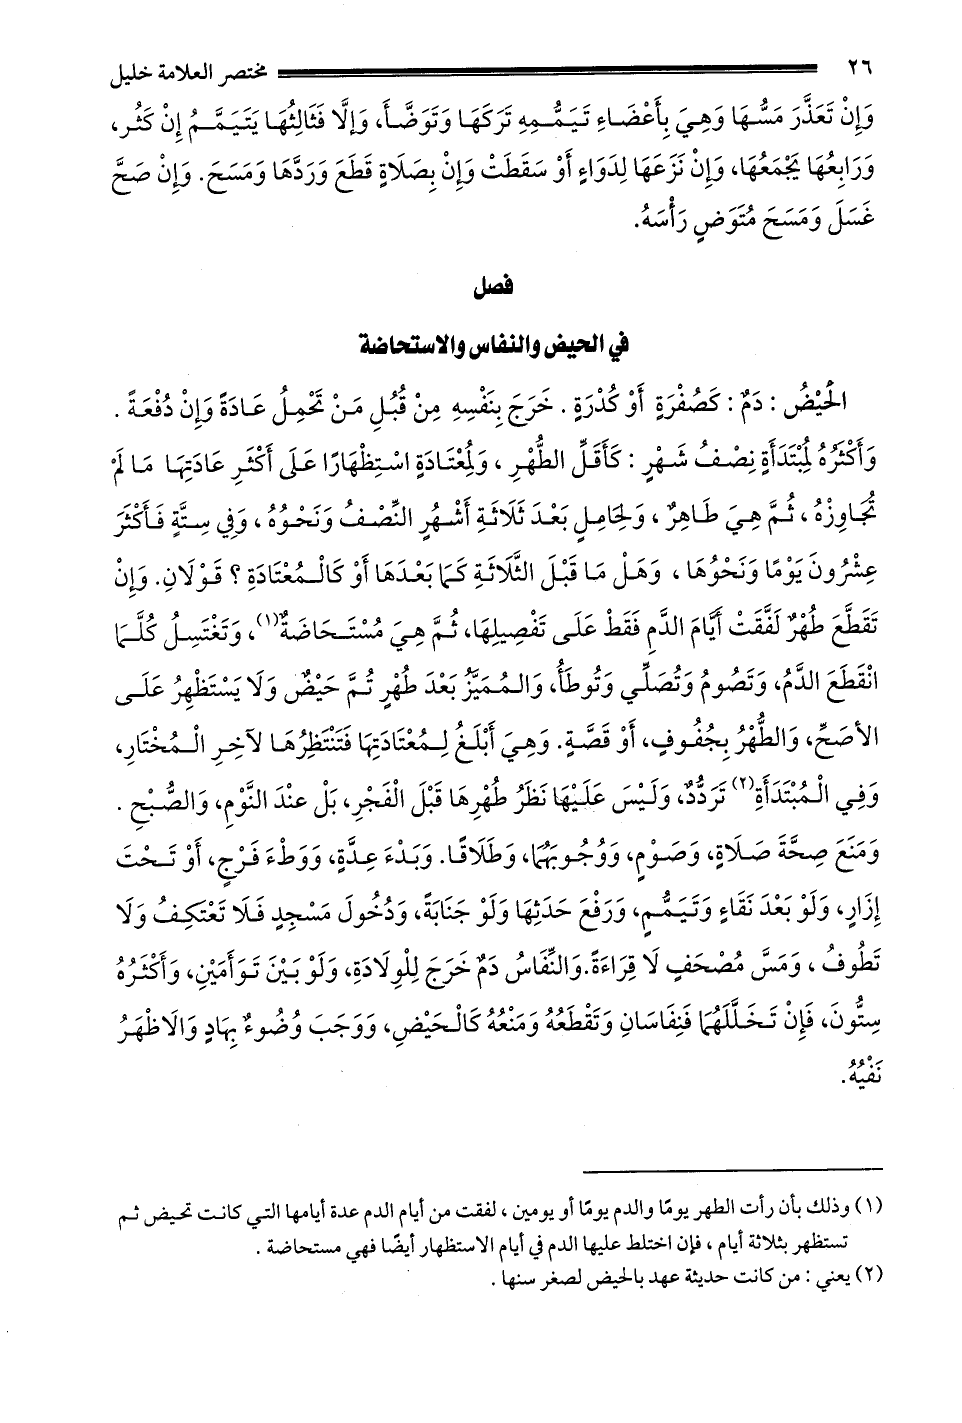 ٢٦ مختصر العلامة خليل
وَإِنْ تَعَذَّرَ مَسُّهَا وَهِيَ بِأَعْضَاءِ تَيَمُّمِهِ تَرَكَهَا وَتَوَضَّأَ، وَإِلَّا فَثَالِثُهَا يَتَيَمَّمُ إِنْ كَثُر،
وَرَابِعُهَا يَجْمَعُهَا، وَإِنْ نَزَعَهَا لِدَوَاءٍ أَوْ سَقَطَتْ وَإِنْ بِصَلَاةٍ قَطَعَ وَرَدَّهَا وَمَسَحَ. وَإِنْ صَحَّ
غَسَلَ وَمَسَحَ مُتَوَضٍ رَأْسَهُ.
فصل
في الحيض والنفاس والاستحاضة
الْحَيْضُ : دَمٌ : كَصُفْرَةٍ أَوْ كُدْرَةٍ . خَرَجَ بِنَفْسِهِ مِنْ قُبُلِ مَنْ تَحْمِلُ عَادَةً وَإِنْ دُفْعَةً .
وَأَكْثَرُهُ لِمُبْتَدَأَةٍ نِصْفُ شَهْرٍ : كَأَقَلِّ الطُّهْرِ ، وَلِمُعْتَادَةٍ اسْتِظْهَارًا عَلَى أَكْثَرِ عَادَتِهَا مَا لَمْ
تُجَاوِزْهُ ، ثُمَّ هِيَ طَاهِرٌ ، وَلِحَامِلٍ بَعْدَ ثَلَاثَةِ أَشْهُرٍ النِّصْفُ وَنَحْوُهُ ، وَفِي سِتَّةٍ فَأَكْثَرَ
عِشْرُونَ يَوْمًا وَنَحْوُهَا ، وَهَلْ مَا قَبْلَ الثَّلَاثَةِ كَمَا بَعْدَهَا أَوْ كَالْمُعْتَادَةِ ؟ قَوْلَانِ. وَإِنْ
تَقَطَّعَ طُهْرٌ لَفَّقَتْ أَيَّامَ الدَّمِ فَقَطْ عَلَى تَفْصِيلِهَا، ثُمَّ هِيَ مُسْتَحَاضَةٌ(١)، وَتَغْتَسِلُ كُلَّمَا
انْقَطَعَ الدَّمُ، وَتَصُومُ وَتُصَلِّي وَتُوطَأُ، وَالْمُمَيَّزُ بَعْدَ طُهْرٍ تُمَّ حَيْضٌ وَلَا يَسْتَظْهِرُ عَلَى
الأَصَحِّ، وَالطُّهْرُ بِجُفُوفٍ، أَوْ قَصَّةٍ. وَهِيَ أَبْلَغُ لِمُعْتَادَتِهَا فَتَنْتَظِرُهَا لآخِرِ الْمُخْتَارِ،
وَفِي الْمُبْتَدَأَةِ(٢) تَرَدُّدٌ، وَلَيْسَ عَلَيْهَا نَظَرُ طُهْرِهَا قَبْلَ الْفَجْرِ، بَلْ عِنْدَ النَّوْمِ، وَالصُّبْحِ .
وَمَنَعَ صِحَّةَ صَلَاةٍ، وَصَوْمٍ، وَوُجُوبَهُمَا، وَطَلَاقًا. وَبَدْءَ عِدَّةٍ، وَوَطْءَ فَرْجٍ، أَوْ تَحْتَ
إِزَارٍ، وَلَوْ بَعْدَ نَقَاءٍ وَتَيَمُّمٍ، وَرَفْعَ حَدَثِهَا وَلَوْ جَنَابَةً، وَدُخُولَ مَسْجِدٍ فَلَا تَعْتَكِفُ وَلَا
تَطُوفُ ، وَمَسَّ مُصْحَفٍ لَا قِرَاءَةً.وَالنِّفَاسُ دَمٌ خَرَجَ لِلْوِلَادَةِ، وَلَوْ بَيْنَ تَوَأَمَيْنِ، وَأَكْثَرُهُ
سِتُّونَ، فَإِنْ تَخَلَّلَهُمَا فَنِفَاسَانِ وَتَقَطُّعُهُ وَمَنْعُهُ كَالْحَيْضِ، وَوَجَبَ وُضُوءٌ بِهَادٍ وَالَاظْهَرُ
نَفْيُهُ.
(١) وذلك بأن رأت الطهر يومًا والدم يومًا أو يومين ، لفقت من أيام الدم عدة أيامها التي كانت تحيض ثم
تستظهر بثلاثة أيام ، فإن اختلط عليها الدم في أيام الاستظهار أيضًا فهي مستحاضة .
(٢) يعني : من كانت حديثة عهد بالحيض لصغر سنها .